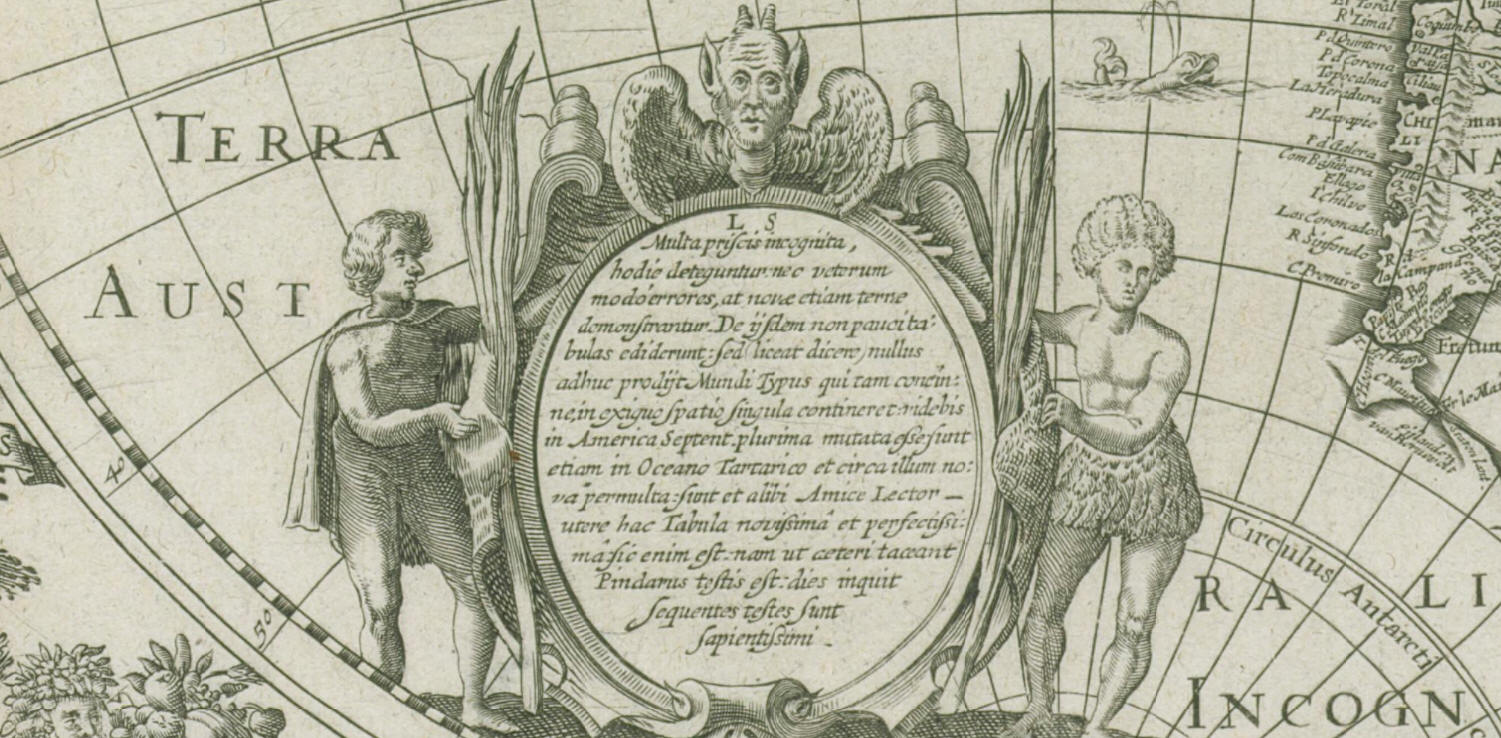 TERRA
AUST
40
50
L S
Multa priscis incognita,
hodie deteguntur: nec veterum
modo errores, at novæ etiam terræ
demonstrantur. De ijsdem non pauci ta:
bulas ediderunt: sed liceat dicere, nullus
adhuc prodijt Mundi Typus qui tam concin:
ne, in exiguo spatio singula contineret: videbis
in America Septent. plurima mutata esse sunt
etiam in Oceano Tartarico et circa illum no:
va permulta: sunt et alibi Amice Lector —
utere hac Tabula novissimâ et perfectissi:
mâ: sic enim est: nam ut cæteri taceant
Pindarus testis est: dies inquit
sequentes testes sunt
sapientissimi.
R. Limal
P. d Quintero
P d Corona
Topocalma
La Heradura
CHI
LI
P d Galera
Los Coronados
C. Promiro
Campana
NA
Fretum
Circulus Antarcti
RA LI
INCOGN